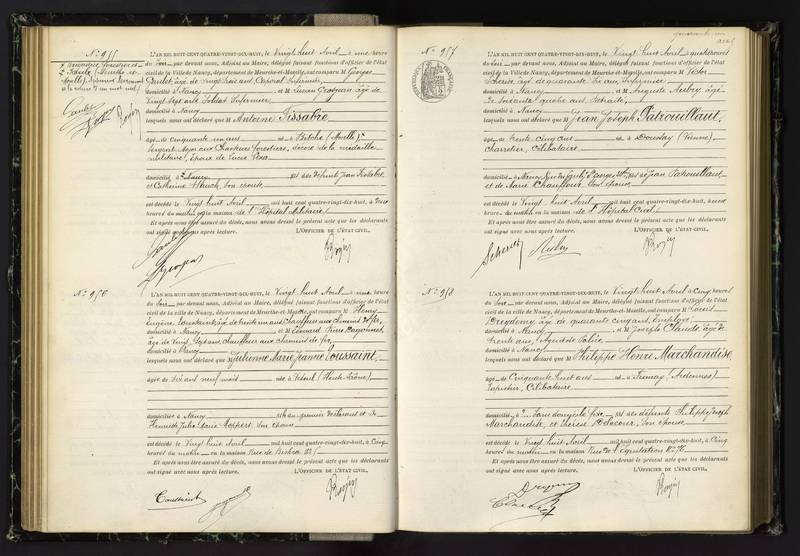 N° 955
L'AN MIL HUIT CENT QUATRE-VINGT-DIX-HUIT, le Vingt huit Avril à une heure
du Soir par devant nous, Adjoint au Maire, délégué faisant fonctions d'officier de l'état
civil de la ville de Nancy, département de Meurthe-et-Moselle, ont comparu M Georges
âgé de Vingt trois ans, Caporal Infirmier
domicilié à Nancy et M Lucien Grosjean âgé de
Vingt sept ans Soldat Infirmier
domicilié à Nancy
lesquels nous ont déclaré que M Antoine Tissabre
âgé de Cinquante un ans né à Bitche (Moselle)
Sergent Major aux Chasseurs forestiers, décoré de la médaille
militaire, époux de Lucie
domicilié à Nancy
et Catherine son épouse
est décédé le Vingt huit Avril mil huit cent quatre-vingt-dix-huit, à
heures du matin en la maison de l'Hôpital Militaire
Et après nous être assuré du décès, nous avons dressé le présent acte que les déclarants
ont signé avec nous après lecture. L'OFFICIER DE L'ÉTAT CIVIL,
N° 956
L'AN MIL HUIT CENT QUATRE-VINGT-DIX-HUIT, le Vingt huit Avril à une heure
du Soir par devant nous, Adjoint au Maire, délégué faisant fonctions d'officier de l'état
civil de la ville de Nancy, département de Meurthe-et-Moselle, ont comparu M Henri
Eugène Toussaint, âgé de trente un ans, Chauffeur aux chemins de fer,
domicilié à Nancy et M Edouard Pierre
âgé de Vingt sept ans, chauffeur aux chemins de fer,
domicilié à Nancy
lesquels nous ont déclaré que M Julienne Marie Jeanne Toussaint,
âgée de Six ans neuf mois née à Vesoul (Haute Saône)
domiciliée à Nancy fille du premier déclarant et de
Henriette Julie Marie son épouse
est décédé le Vingt huit Avril mil huit cent quatre-vingt-dix-huit, à Cinq
heures du matin en la maison Rue de
Et après nous être assuré du décès, nous avons dressé le présent acte que les déclarants
ont signé avec nous après lecture. L'OFFICIER DE L'ÉTAT CIVIL,
Toussaint
N° 957
L'AN MIL HUIT CENT QUATRE-VINGT-DIX-HUIT, le Vingt huit Avril à quatre heures
du Soir par devant nous, Adjoint au Maire, délégué faisant fonctions d'officier de l'état
civil de la ville de Nancy, département de Meurthe-et-Moselle, ont comparu M Victor
Scherier, âgé de quarante six ans Infirmier
domicilié à Nancy et M Auguste Aubry âgé
de soixante quatre ans, Retraité
domicilié à Nancy
lesquels nous ont déclaré que M Jean Joseph Patrouillaut,
âgé de trente cinq ans né à Doussay (Vienne)
Charretier, Célibataire
domicilié à Nancy, fils de Jean Patrouillaut
et de Marie Chauffour, son épouse
est décédé le Vingt huit Avril mil huit cent quatre-vingt-dix-huit, à
heures du matin en la maison de l'Hôpital Civil
Et après nous être assuré du décès, nous avons dressé le présent acte que les déclarants
ont signé avec nous après lecture. L'OFFICIER DE L'ÉTAT CIVIL,
Aubry
N° 958
L'AN MIL HUIT CENT QUATRE-VINGT-DIX-HUIT, le Vingt huit Avril à Cinq heures
du Soir par devant nous, Adjoint au Maire, délégué faisant fonctions d'officier de l'état
civil de la ville de Nancy, département de Meurthe-et-Moselle, ont comparu M Louis
âgé de quarante cinq ans, Employé
domicilié à Nancy et M Joseph Claude âgé de
trente ans, Agent de Police
domicilié à Nancy
lesquels nous ont déclaré que M Philippe Henri Marchandise,
âgé de Cinquante huit ans né à (Ardennes)
Tapissier, Célibataire
domicilié à Sans domicile fixe fils des défunts Philippe Joseph
Marchandise, et Thérèse son épouse
est décédé le Vingt huit Avril mil huit cent quatre-vingt-dix-huit, à Cinq
heures du matin en la maison Rue de l'équitation
Et après nous être assuré du décès, nous avons dressé le présent acte que les déclarants
ont signé avec nous après lecture. L'OFFICIER DE L'ÉTAT CIVIL,